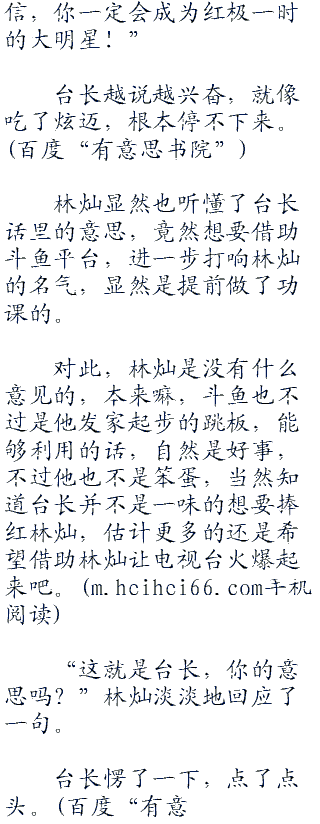 信，你一定会成为红极一时
的大明星！”
台长越说越兴奋，就像
吃了炫迈，根本停不下来。
(百度“有意思书院”)
林灿显然也听懂了台长
话里的意思，竟然想要借助
斗鱼平台，进一步打响林灿
的名气，显然是提前做了功
课的。
对此，林灿是没有什么
意见的，本来嘛，斗鱼也不
过是他发家起步的跳板，能
够利用的话，自然是好事，
不过他也不是笨蛋，当然知
道台长并不是一味的想要捧
红林灿，估计更多的还是希
望借助林灿让电视台火爆起
来吧。(m.hcihci66.com手机
阅读)
“这就是台长，你的意
思吗？”林灿淡淡地回应了
一句。
台长愣了一下，点了点
头。(百度“有意